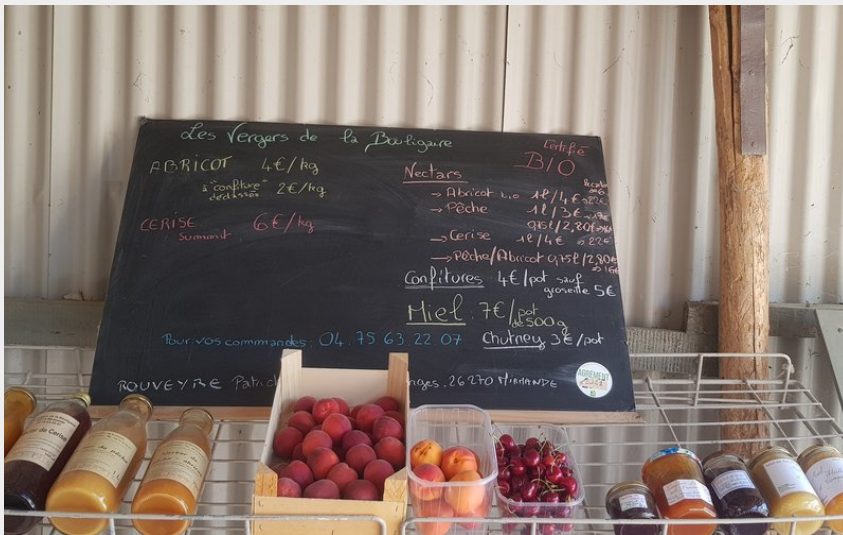 Les Vergers de la Bouligaire
Certifié
BIO
ABRICOT 4€/kg
à "confiture" 2€/kg
déclassés
CERISE 6€/kg
Summit
Nectars
→ Abricot bio 1l/4€ → 22€
→ Pêche 1l/3€
0,75l/2,80€
→ Cerise 1l/4€ → 22€
→ Pêche/Abricot 0,75l/2,80€
Confitures 4€/pot sauf
groseille 5€
Miel : 7€/pot
de 500g
Chutney 3€/pot
Pour vos commandes : 04. 75 63 22 07
ROUVEYRE 26270 MIRMANDE
AGREMENT